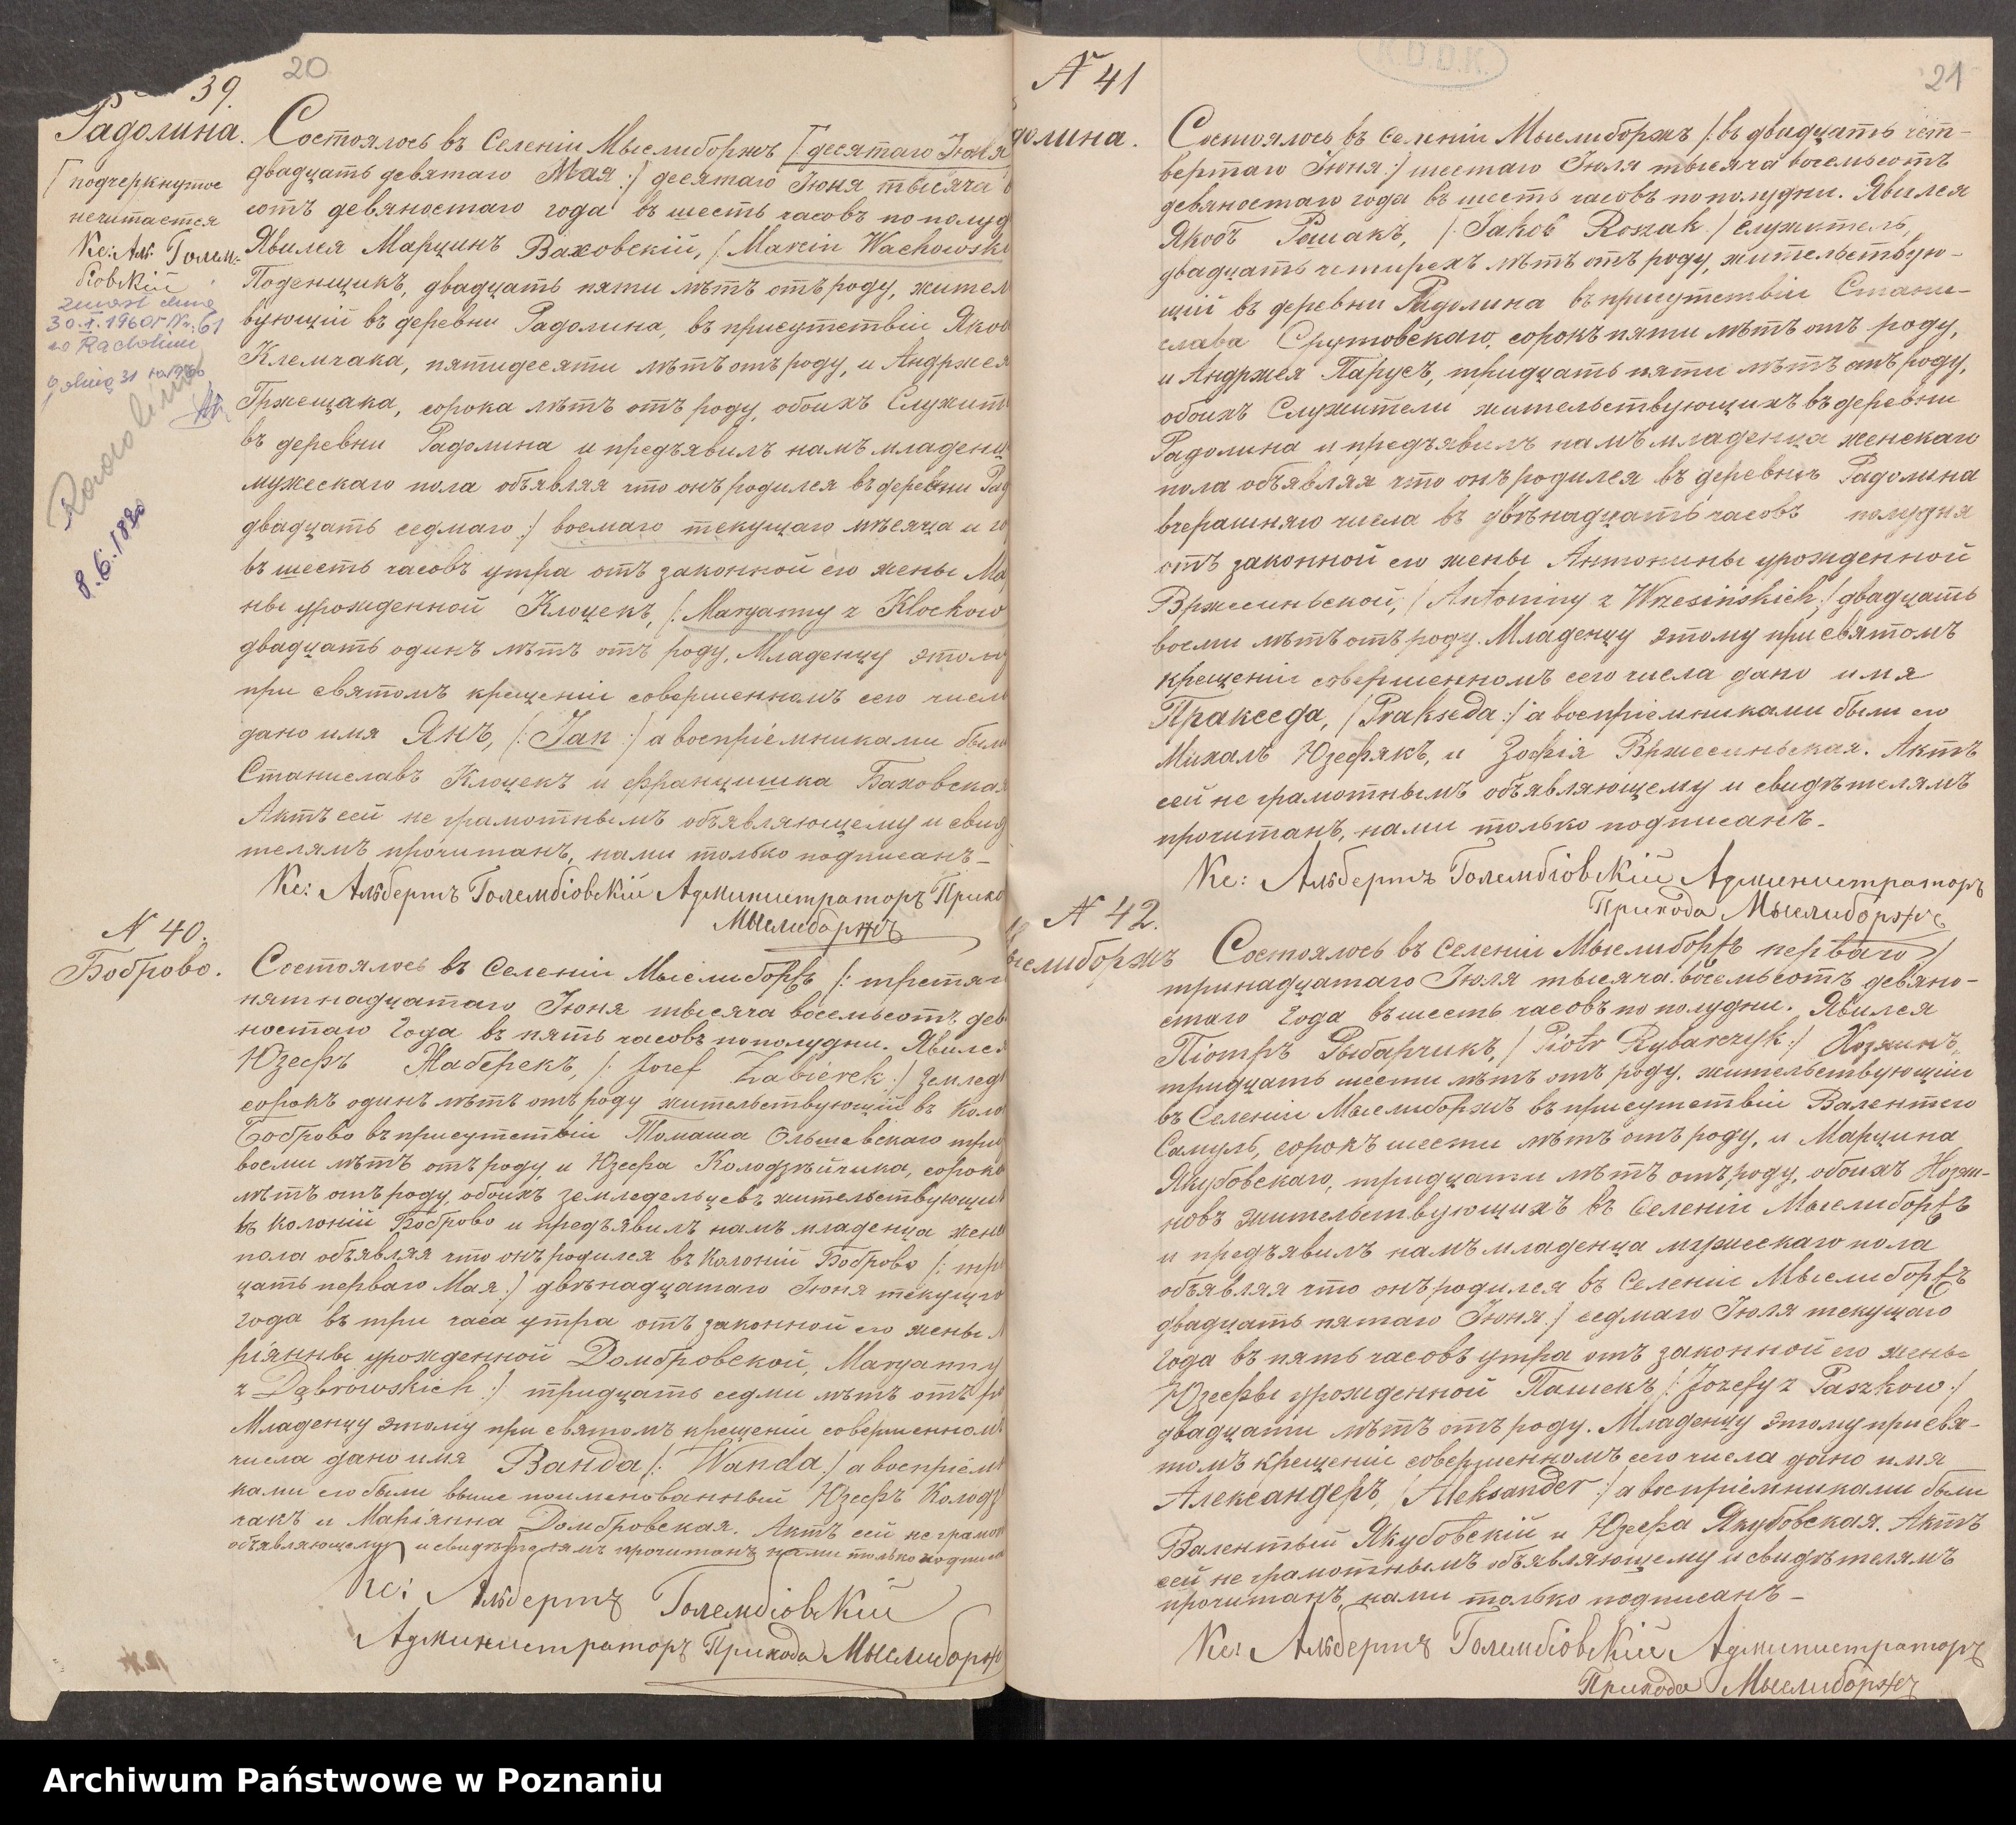 20
39.
Радолина.
[подчеркнутое
нечитается
Кс: Ал: Голем-
біовскій
30.I.1960 r Nr. 61
w Radolinie
Radolina
8.6.1890
Состоялось въ Селеніи Мыслиборжъ [десятаго Іюня
двадцать девятаго Мая:/ десятаго Іюня тысяча в
сотъ девяностаго года въ шесть часовъ по полуд
Явился Марцинъ Ваховскій, /: Marcin Wachowski
Поденщикъ, двадцать пяти лѣтъ отъ роду, жител
вующій въ деревни Радолина, въ присутствіи Яков
Клемчака, пятидесяти лѣтъ отъ роду, и Андржея
Гржещака, сорока лѣтъ отъ роду, обоихъ Служит
въ деревни Радолина и предъявилъ намъ младенц
мужескаго пола объявляя что онъ родился въ деревни Рад
двадцать седмаго :/ восмаго текущаго мѣсяца и го
въ шесть часовъ утра отъ законной его жены Ма
нны урожденной Клоцекъ, /: Maryanny z Klockow
двадцать одинъ лѣтъ отъ роду, Младенцу этому
при святомъ крещеніи совершенномъ сего числа
дано имя Янъ, /: Jan :/ а воспріемниками были
Станиславъ Клоцекъ и Францишка Баховская
Актъ сей не грамотнымъ объявляющему и свид
телямъ прочитанъ, нами только подписанъ –
Кс: Альбертъ Голембіовскій Администраторъ Прихо
Мыслиборжъ
N 40.
Боброво.
Состоялось въ Селеніи Мыслиборжъ /: третяг
пятнадцатаго Іюня тысяча восемьсотъ девя
ностаго года въ пять часовъ по полудни. Явился
Юзефъ Жаберекъ, /: Jozef Żabierek :/ Землед
сорокъ одинъ лѣтъ отъ роду жительствующій въ Коло
Боброво въ присутствіи Томаша Ольшевскаго три
восми лѣтъ отъ роду и Юзефа Колодзѣйчика, сорокъ
лѣтъ отъ роду, обоихъ земледельцевъ жительствующих
въ Колоніи Боброво и предъявилъ намъ младенца женс
пола объявляя что онъ родился въ Колоніи Боброво /: три
цать перваго Мая :/ двѣнадцатаго Іюня текущаго
года въ три часа утра отъ законной его жены М
ріянны урожденной Домбровской, Maryanny
z Dąbrowskich :/ тридцать седми лѣтъ отъ ро
Младенцу этому при святомъ крещеніи совершенномъ
числа дано имя Ванда /: Wanda :/ а воспріем
ками его были выше поименованный Юзефъ Колодз
чакъ и Маріянна Домбровская. Актъ сей не грамот
объявляющему и свидѣтелямъ прочитанъ нами только подписа
Кс: Альбертъ Голембіовскій
Администраторъ Прихода Мыслиборж
K.D.D.K.
21
N 41
долина.
Состоялось въ Селеніи Мыслиборжъ /: въ двадцать чет-
вертаго Іюня :/ шестаго Іюля тысяча восемьсотъ
девяностаго года въ шесть часовъ по полудни. Явился
Якобъ Рошакъ, /: Jakob Roszak :/ служитель,
двадцать четырехъ лѣтъ отъ роду, жительствую-
щій въ деревни Радолина въ присутствіи Стани-
слава Срутовскаго, сорокъ пяти лѣтъ отъ роду,
и Андржея Парусъ, тридцать пяти лѣтъ отъ роду,
обоихъ Служители жительствующихъ въ деревни
Радолина и предъявилъ намъ младенца женскаго
пола объявляя что онъ родился въ деревнѣ Радолина
вчерашняго числа въ двѣнадцать часовъ полудня
отъ законной его жены Антонины урожденной
Вржесиньской, /: Antoniny z Wrzesińskich :/ двадцать
восми лѣтъ отъ роду. Младенцу этому при святомъ
крещеніи совершенномъ сего числа дано имя
Пракседа, /: Prakseda :/ а воспріемниками были его
Михалъ Юзефякъ, и Зофія Вржесиньская. Актъ
сей не грамотнымъ объявляющему и свидѣтелямъ
прочитанъ, нами только подписанъ –
Кс: Альбертъ Голембіовскій Администраторъ
Прихода Мыслиборжъ
N 42.
ыслиборжъ
Состоялось въ Селеніи Мыслиборжъ перваго /
тринадцатаго Іюля тысяча восемьсотъ девяно-
стаго года въ шесть часовъ по полудни. Явился
Піотръ Рыбарчикъ, /: Piotr Rybarczyk :/ Хозяинъ,
тридцать шести лѣтъ отъ роду, жительствующій
въ Селеніи Мыслиборжъ въ присутствіи Валентего
Самуль, сорокъ шести лѣтъ отъ роду, и Марцина
Якубовскаго, тридцати лѣтъ отъ роду, обоихъ Хозяи-
новъ жительствующихъ въ Селеніи Мыслиборжъ
и предъявилъ намъ младенца мужескаго пола
объявляя что онъ родился въ Селеніи Мыслиборжъ
двадцать пятаго Іюня :/ седмаго Іюля текущаго
года въ пять часовъ утра отъ законной его жены
Юзефы урожденной Пашекъ /: Jozefy z Paszkow :/
двадцати лѣтъ отъ роду. Младенцу этому при свя-
томъ крещеніи совершенномъ сего числа дано имя
Александеръ, /: Aleksander :/ а воспріемниками были
Валентый Якубовскій и Юзефа Якубовская. Актъ
сей не грамотнымъ объявляющему и свидѣтелямъ
прочитанъ, нами только подписанъ –
Кс: Альбертъ Голембіовскій Администраторъ
Прихода Мыслиборжъ
Archiwum Państwowe w Poznaniu